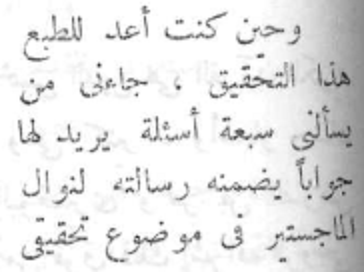 وحين كنت أعد للطبع
هذا التحقيق ، جاءنى من
يسألنى سبعة أسئلة يريد لها
جواباً يضمنه رسالته لنوال
الماجستير فى موضوع تحقيقى